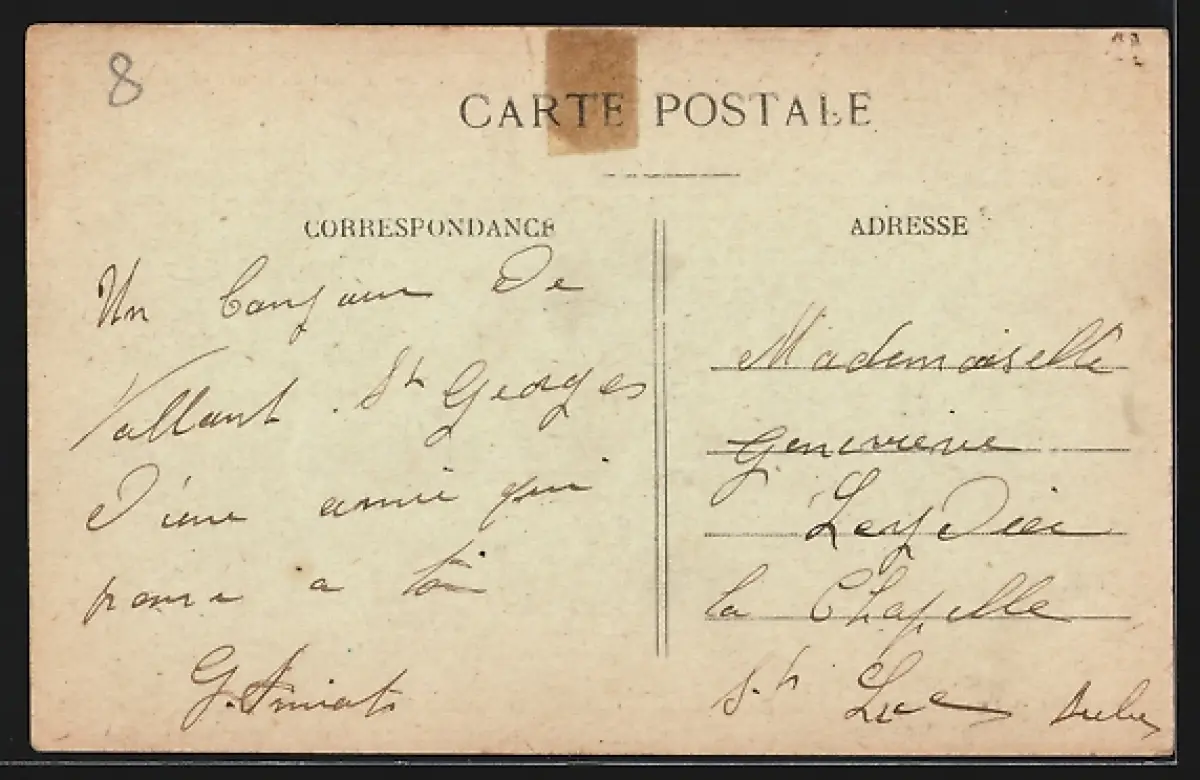 8
CARTE POSTALE
CORRESPONDANCE
Un bonjour de
Vallant St Georges
d'une amie qui
pense a toi
G.
ADRESSE
Mademoiselle
Genevieve
la Chapelle
St Luc Aube